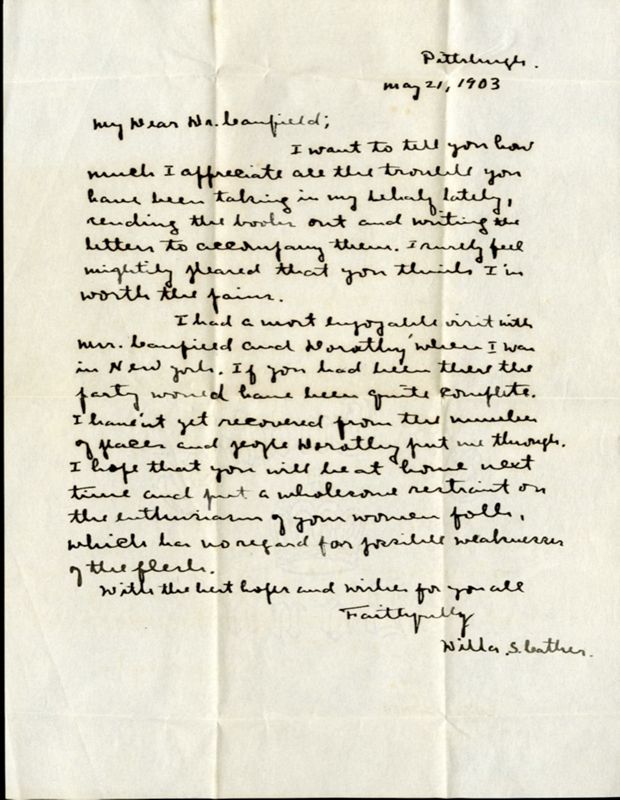 Pittsburgh.
May 21, 1903
My Dear Dr. Canfield;
I want to tell you how
much I appreciate all the trouble you
have been taking in my behalf lately,
sending the books out and writing the
letters to accompany them. I surely feel
mightily pleased that you think I'm
worth the pains.
I had a most enjoyable visit with
Mrs. Canfield and Dorothy when I was
in New York. If you had been there the
party would have been quite complete.
I have'nt yet recovered from the number
of places and people Dorothy put me through.
I hope that you will be at home next
time and put a wholesome restraint on
the enthusiasm of your women folk,
which has no regard for possible weaknesses
of the flesh.
With the best hopes and wishes for you all
Faithfully
Willa S. Cather.